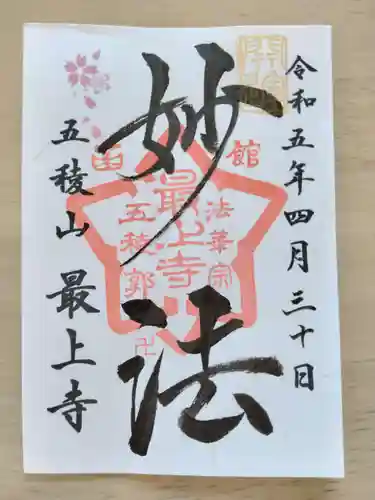 令和五年四月三十日
妙法
五稜山 最上寺
函館
法華宗
最上寺
五稜郭
卍